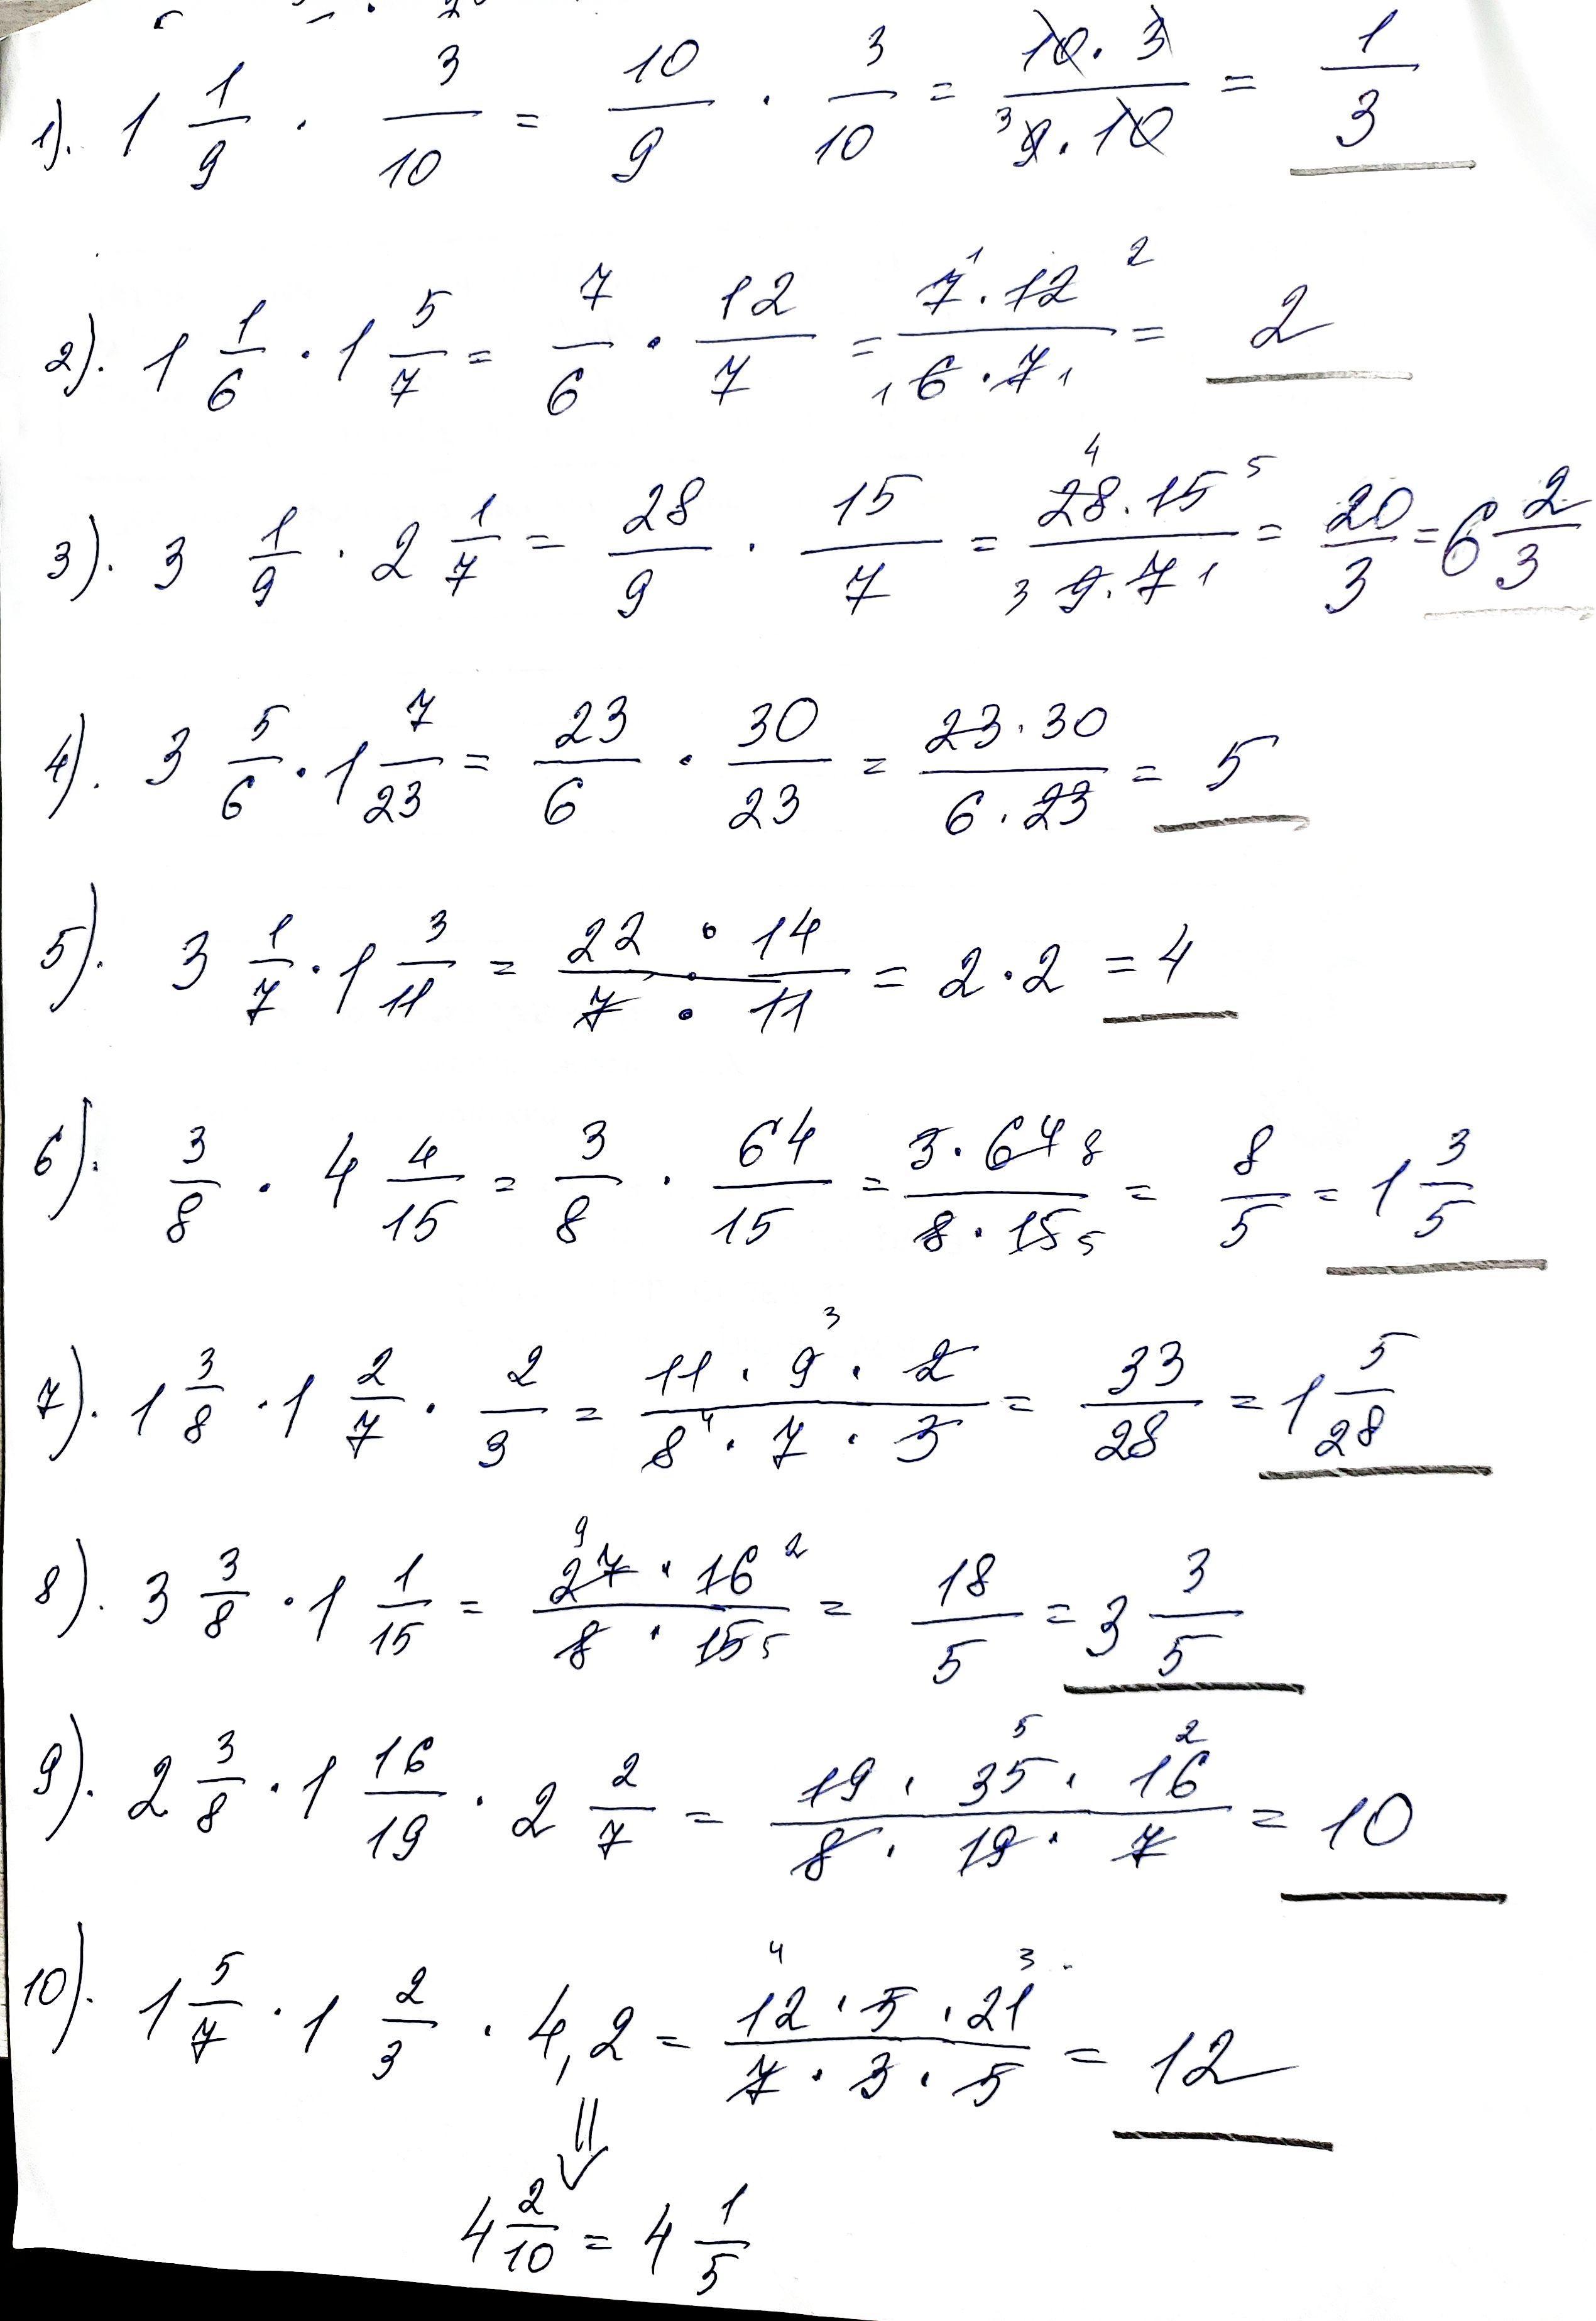 1). 1 1/9 · 3/10 = 10/9 · 3/10 = 10·3/9·10 3 = 1/3
2). 1 1/6 · 1 5/7 = 7/6 · 12/7 = 7·12/6·7 1 2 1 1 = 2
3). 3 1/9 · 2 1/7 = 28/9 · 15/7 = 28·15/9·7 4 5 3 1 = 20/3 = 6 2/3
4). 3 5/6 · 1 7/23 = 23/6 · 30/23 = 23·30/6·23 = 5
5). 3 1/7 · 1 3/11 = 22 · 14/7 · 11 = 2·2 = 4
6). 3/8 · 4 4/15 = 3/8 · 64/15 = 3·64 8/8·15 5 = 8/5 = 1 3/5
7). 1 3/8 · 1 2/7 · 2/3 = 11 · 9 3 · 2/8 4 · 7 · 3 = 33/28 = 1 5/28
8). 3 3/8 · 1 1/15 = 27 9 · 16 2/8 · 15 5 = 18/5 = 3 3/5
9). 2 3/8 · 1 16/19 · 2 2/7 = 19 · 35 5 · 16 2/8 · 19 · 7 = 10
10). 1 5/7 · 1 2/3 · 4,2 = 12 4 · 5 · 21 3/7 · 3 · 5 = 12
4 2/10 = 4 1/5